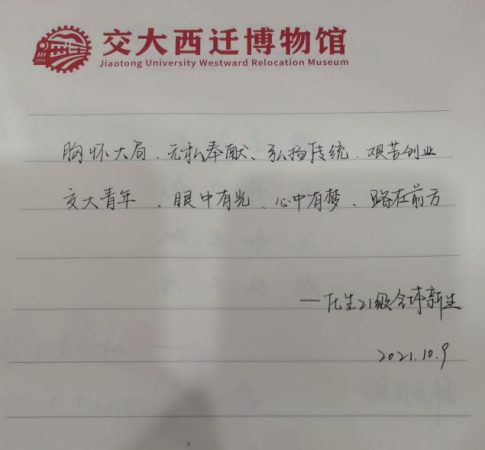 交大西迁博物馆
Jiaotong University Westward Relocation Museum
胸怀大局、无私奉献、弘扬传统、艰苦创业
交大青年、眼中有光、心中有梦、路在前方
21级全体新生
2021.10.9